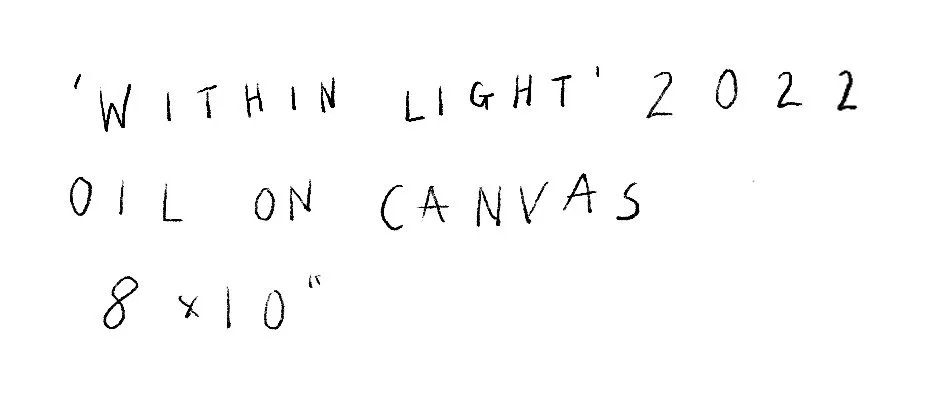 'WITHIN LIGHT' 2022
OIL ON CANVAS
8 x 10"